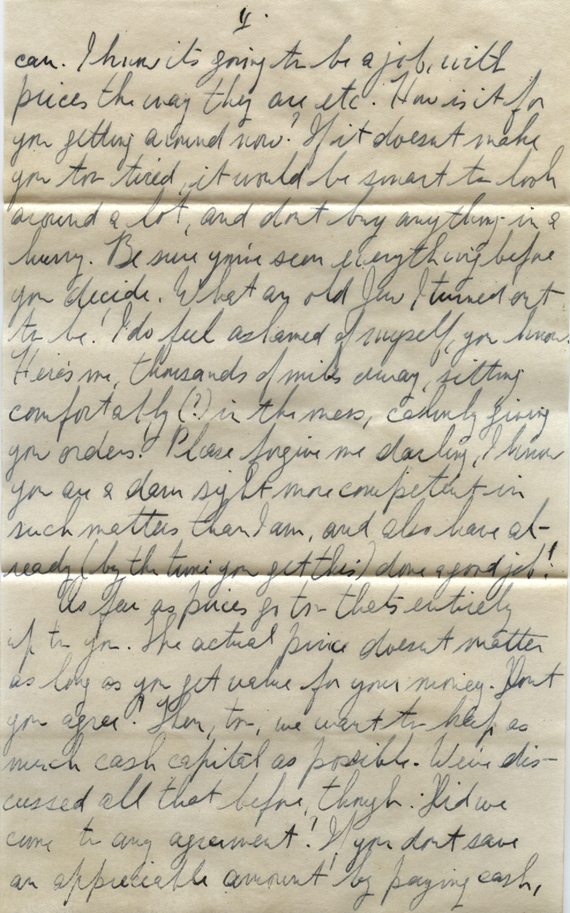 V.
can. I know its going to be a job, with
prices the way they are etc. How is it for
you getting around now? If it doesnt make
you too tired, it would be smart to look
around a lot, and dont buy anything in a
hurry. Be sure you've seen everything before
you decide. What an old Jew I turned out
to be! I do feel ashamed of myself, you know.
Here's me, thousands of miles away, sitting
comfortably (?) in the mess, calmly giving
you orders! Please forgive me darling, I know
you are a darn sight more competent in
such matters than I am, and also have al-
ready (by the time you get this) done a good job!
As far as prices go to- thats entirely
up to you. The actual price doesnt matter
as long as you get value for your money. Dont
you agree? Then, too, we want to keep as
much cash capital as possible. We've dis-
cussed all that before, though. Did we
come to any agreement? If you dont save
an appreciable amount by paying cash,